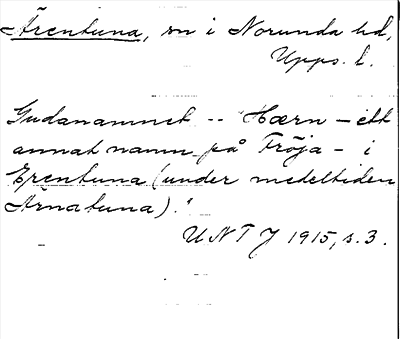 Ärentuna, sn i Norunda hd,
Upps. l.
Gudanamnet -- Hærn – ett
annat namn på Fröja – i
Erentuna (under medeltiden
Arnatuna)."
UNTJ 1915, s. 3.